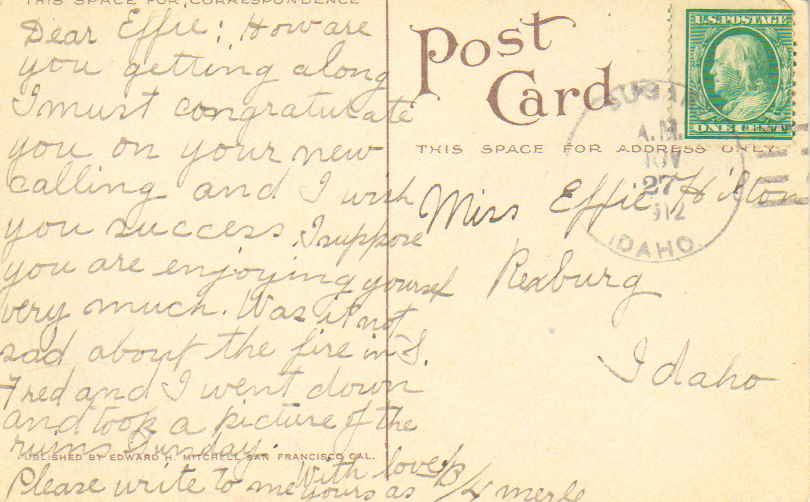 THIS SPACE FOR CORRESPONDENCE
Dear Effie: How are
you getting along
I must congratulate
you on your new
calling and I wish
you success. I suppose
you are enjoying yourself
very much. Was it not
sad about the fire in S.
Fred and I went down
and took a picture of the
ruins Sunday.
PUBLISHED BY EDWARD H. MITCHELL SAN FRANCISCO CAL.
Please write to me
With love
yours as
merle
Post
Card
THIS SPACE FOR ADDRESS ONLY
U.S. POSTAGE
ONE CENT
SUGAR
A.M.
NOV
27
1912
IDAHO.
Miss Effie Hilton
Rexburg
Idaho